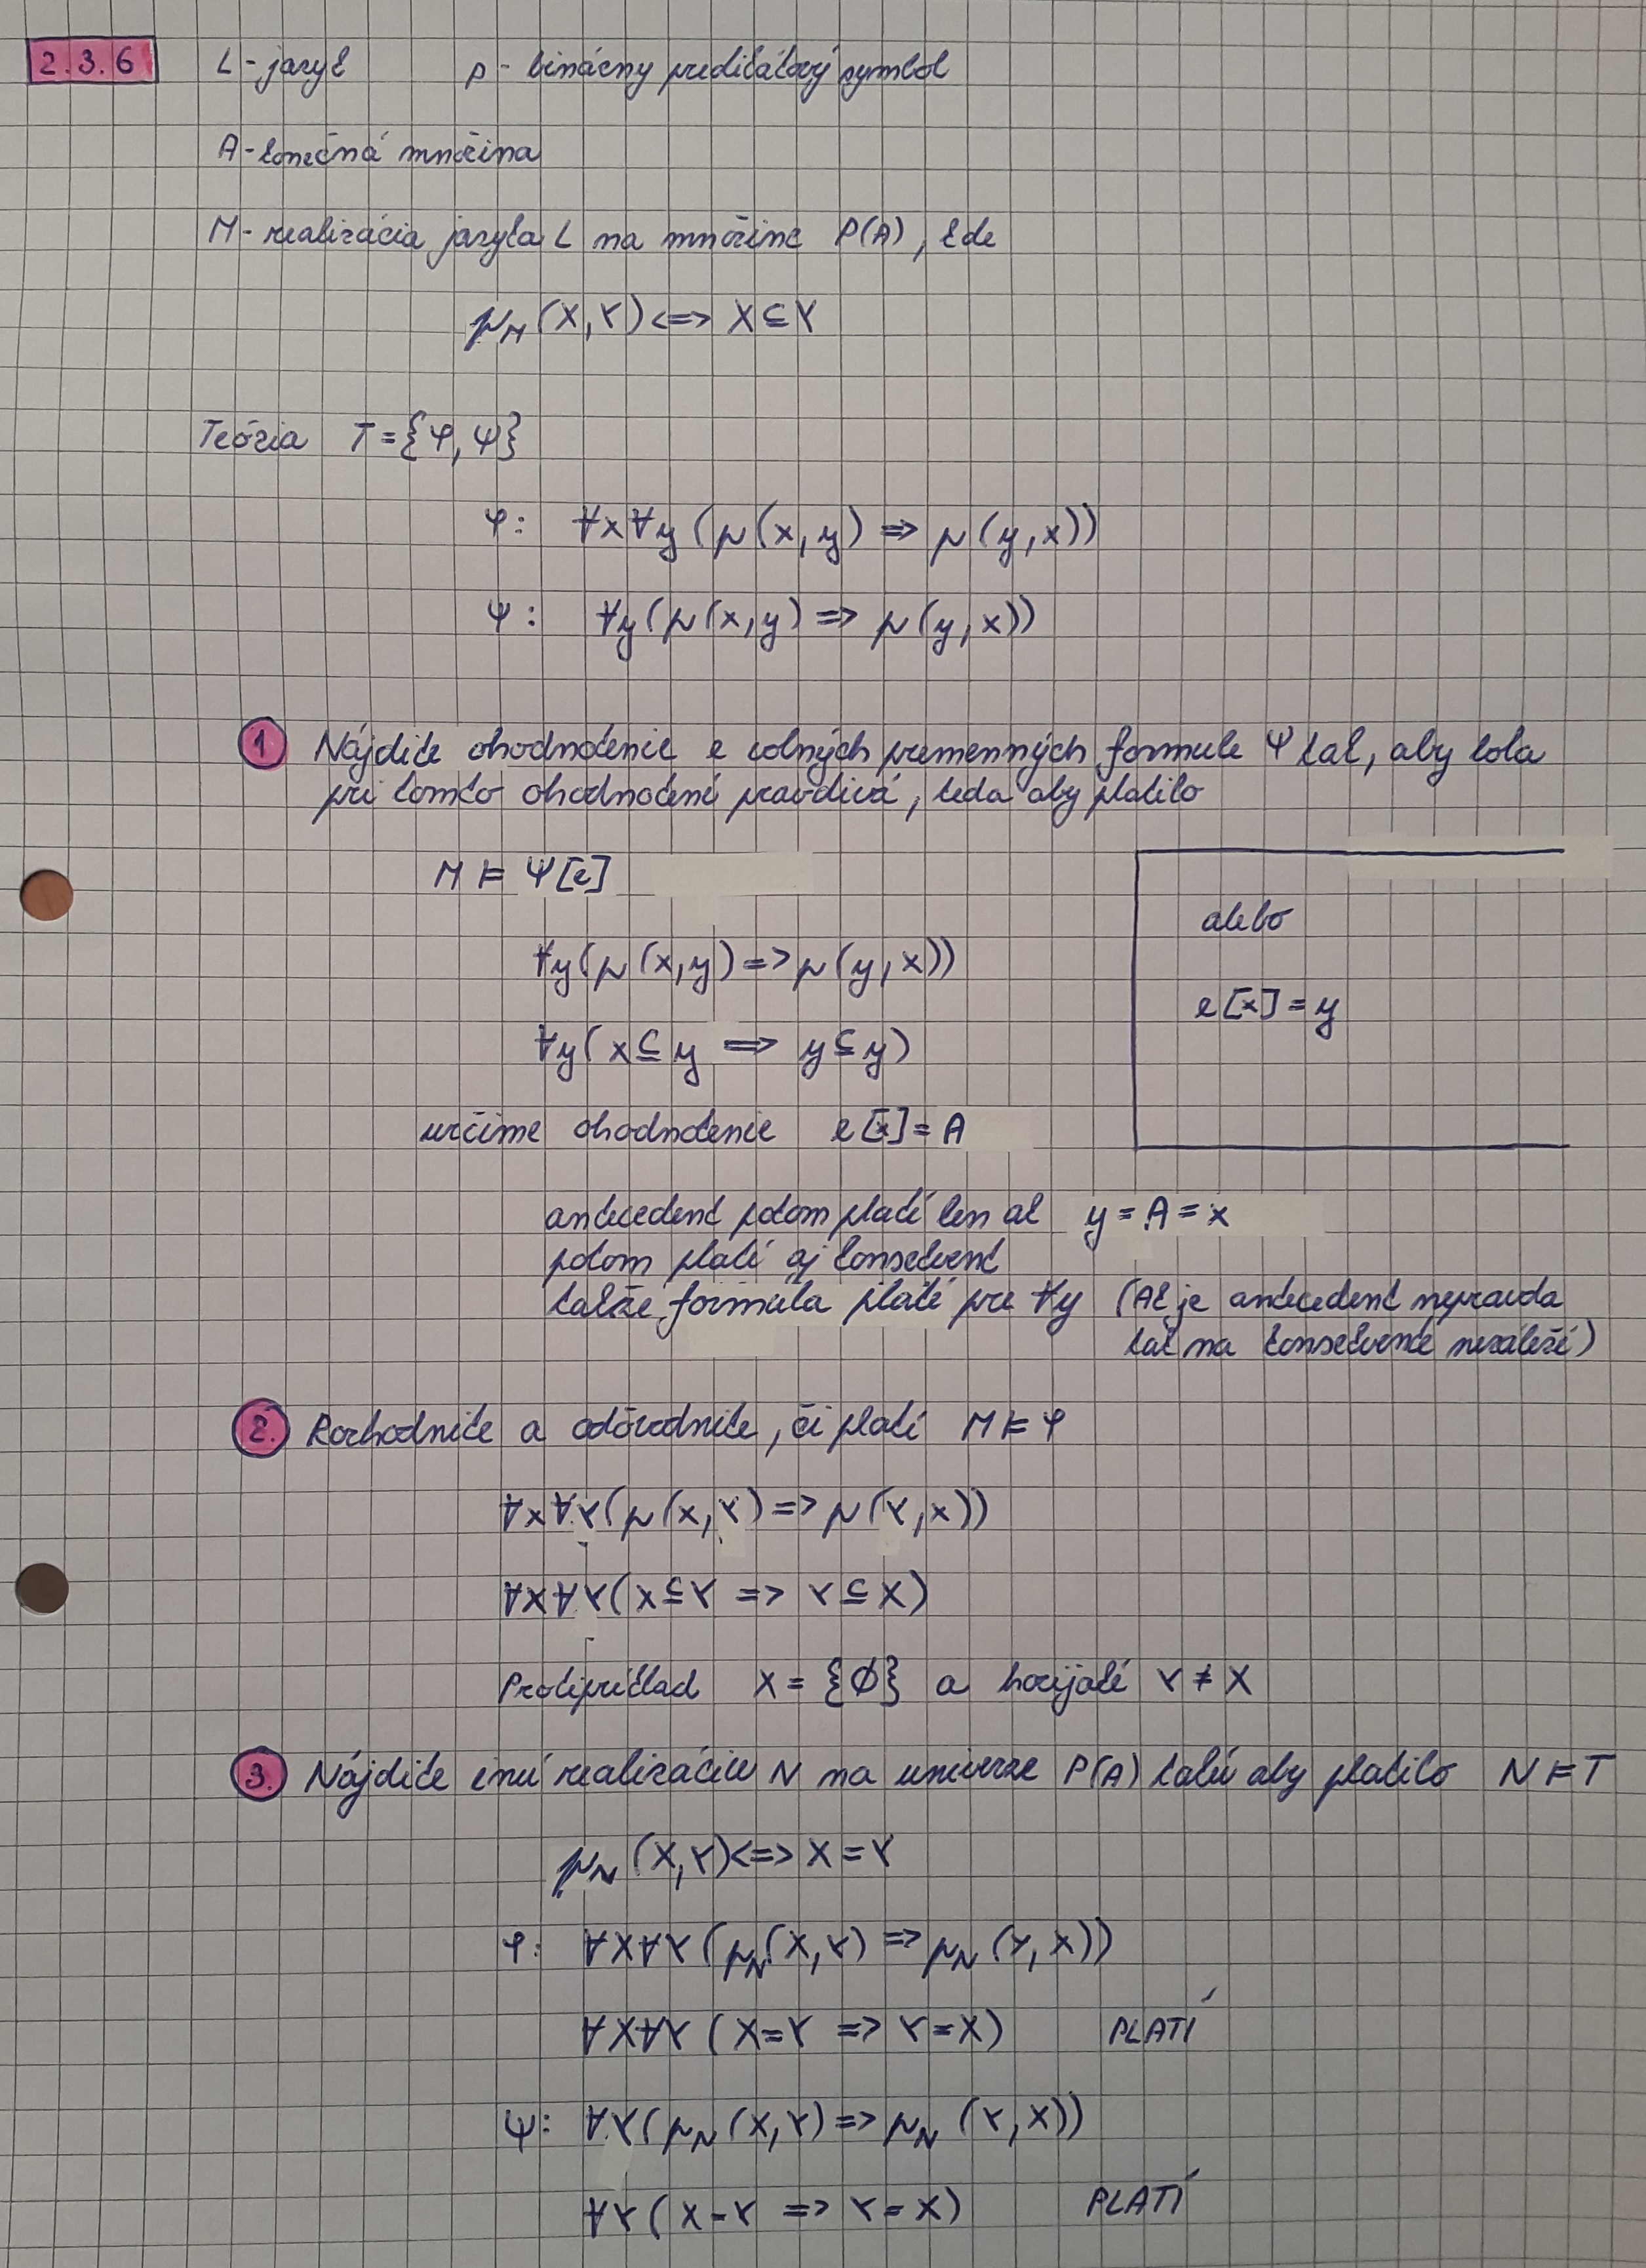 2.3.6 L - jazyk p - binárny predikátový symbol
A - konečná množina
M - realizácia jazyka L na množine P(A), kde
p_M (X, Y) <=> X ⊆ Y
Teória T = {φ, ψ}
φ: ∀x∀y (p(x, y) => p(y, x))
ψ: ∀y (p(x, y) => p(y, x))
1 Nájdite ohodnotenie e voľných premenných formule Ψ tak, aby bola
pri tomto ohodnotení pravdivá, teda aby platilo
M ⊨ Ψ[e]
∀y (p(x, y) => p(y, x))
∀y ( x ⊆ y => y ⊆ y )
určíme ohodnotenie e[x] = A
alebo
e[x] = y
antecedent potom platí len ak y = A = x
potom platí aj konsekvent
takže formula platí pre ∀y (Ak je antecedent nepravda
tak na konsekvente nezáleží)
2. Rozhodnite a odôvodnite, či platí M ⊨ φ
∀x∀Y (p(x, Y) => p(Y, x))
∀X∀Y (X ⊆ Y => Y ⊆ X)
Protipríklad X = {∅} a hocijaké Y ≠ X
3. Nájdite inú realizáciu N na univerze P(A) takú aby platilo N ⊨ T
p_N (X, Y) <=> X = Y
φ: ∀X∀Y (p_N (X, Y) => p_N (Y, X))
∀X∀Y ( X = Y => Y = X) PLATÍ
Ψ: ∀Y (p_N (X, Y) => p_N (Y, X))
∀Y ( X = Y => Y = X) PLATÍ